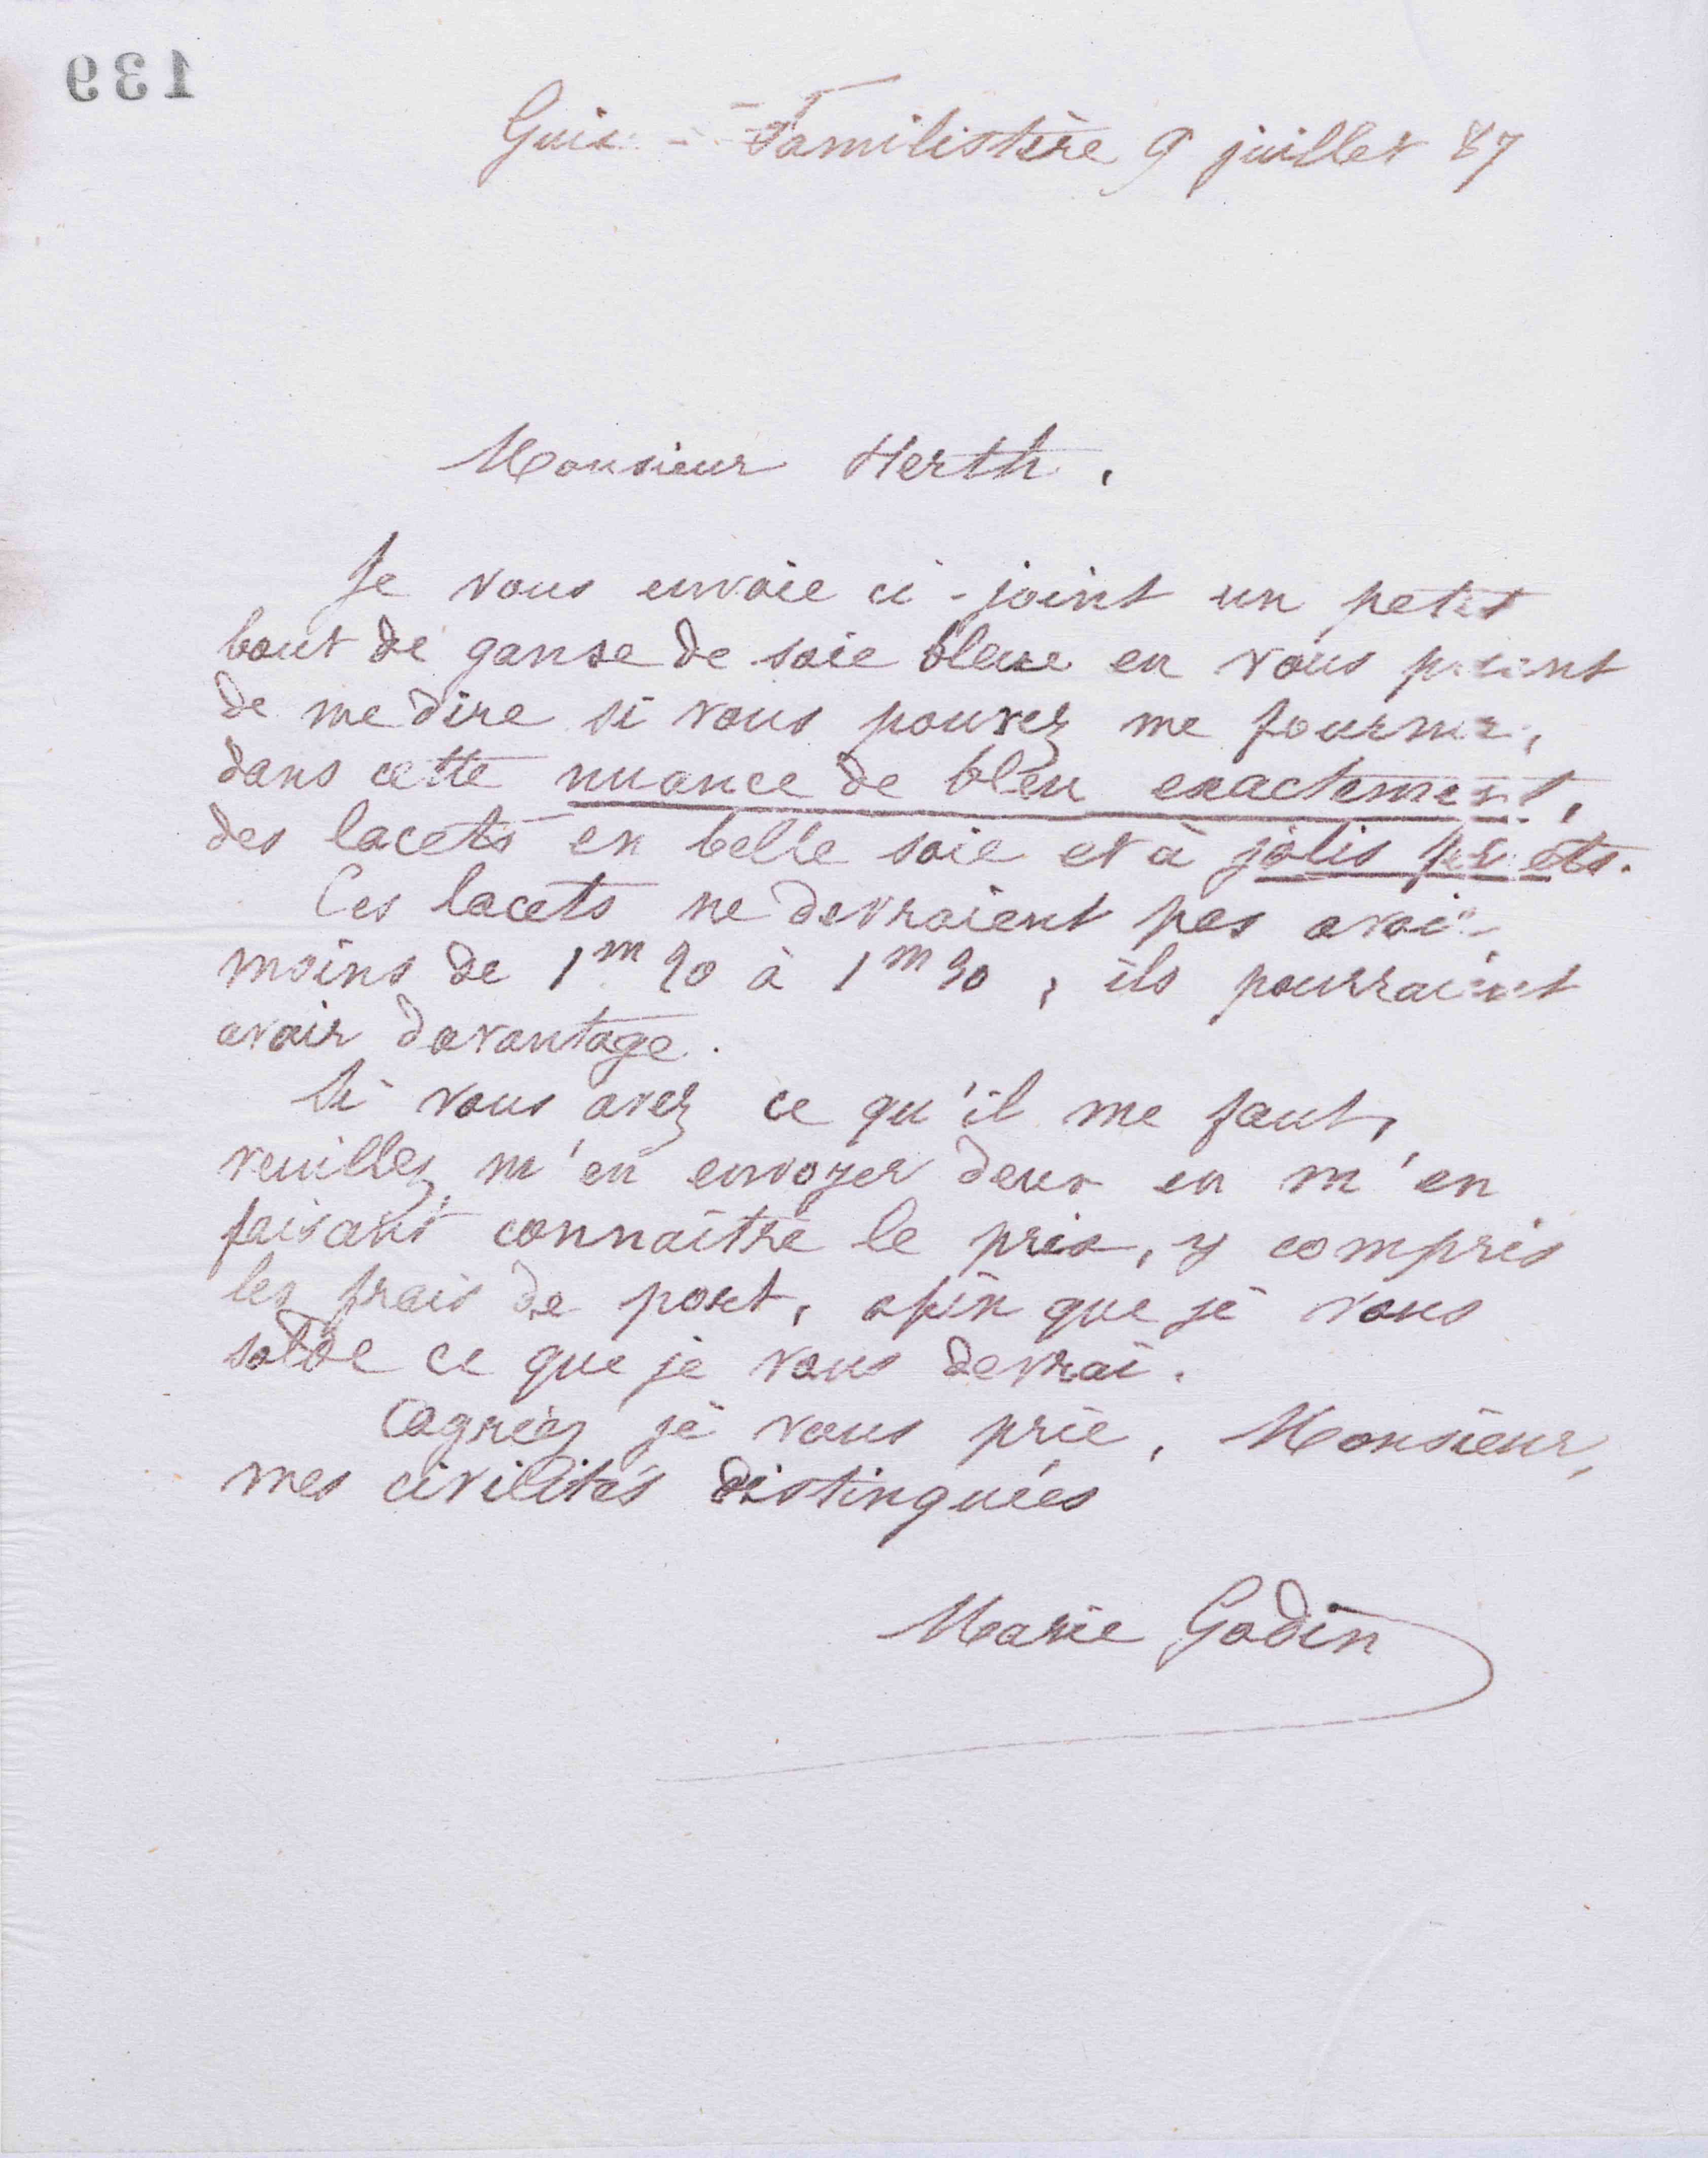 139
Guise - Familistère 9 juillet 87
Monsieur Herth,
Je vous envoie ci-joint un petit
bout de ganse de soie bleue en vous priant
de me dire si vous pouvez me fournir,
dans cette nuance de bleu exactement,
des lacets en belle soie et à jolis
Ces lacets ne devraient pas avoir
moins de 1m 20 à 1m 30, ils pourraient
avoir davantage.
Si vous avez ce qu'il me faut,
veuillez m'en envoyer deux en m'en
faisant connaître le prix, y compris
les frais de port, afin que je vous
solde ce que je vous devrai.
Agréez je vous prie, Monsieur,
mes civilités distinguées
Marie Godin